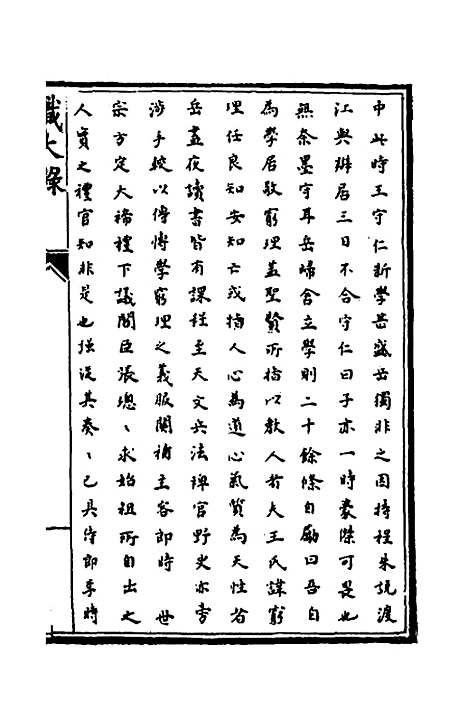 中此時王守仁新學甚盛岳獨非之因持程朱說渡
江與辨居三日不合守仁曰子亦一時豪傑可畏也
無奈墨守耳岳歸舍立學則二十餘條自勵曰吾自
為學居敬窮理蓋聖賢所指以教人者大王氏諱窮
理任良知安知亡或指人心為道心氣質為天性者
岳晝夜讀書皆有課程至天文兵法稗官野史亦旁
涉手鈔以傅博學窮理之義服闋補主客郎時 世
宗方定大禘禮下議閣臣張璁、求始祖所自出之
人實之禮官知非是也強從其奏、已具侍郎李時
識大錄